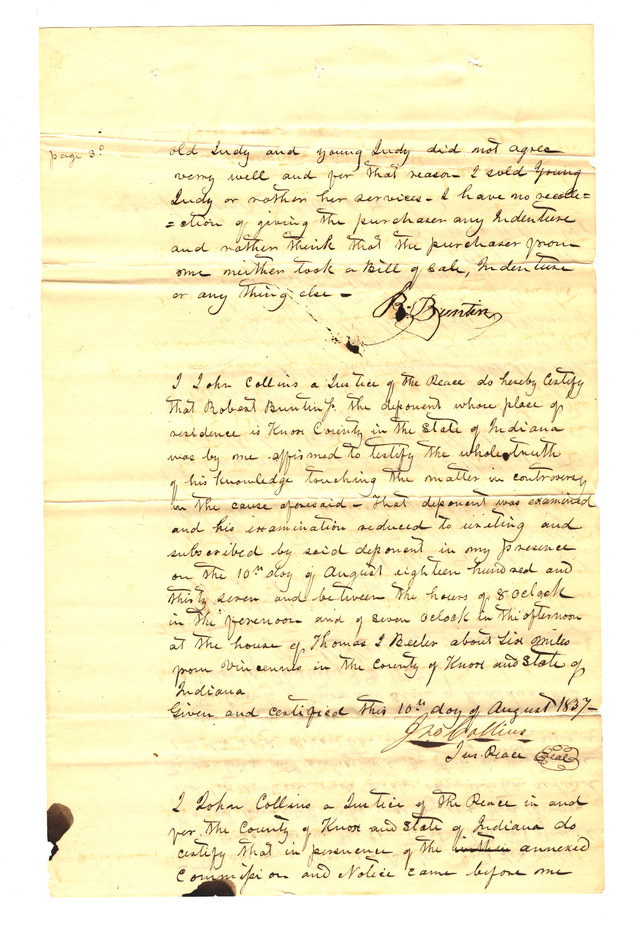 page 3d
old Judy and young Judy did not agree
verry well and for that reason I sold Young
Judy or rather her services - I have no recolle=
=ction of giving the purchaser any Indenture
and rather think that the purchaser from
me neither took a Bill of Sale, Indenture
or any thing else -
R. Buntin
I John Collins a Justice of the Peace do hereby Certify
that Robert Buntin Jr. the deponent whose place of
residence is Knox County in the State of Indiana
was by me affirmed to testify the whole truth
of his knowledge touching the matter in controversy
in the cause aforesaid - That deponent was examined
and his examination reduced to writing and
subscribed by said deponent in my presence
on the 10th day of August eighteen hundred and
thirty seven and between the hours of 8 Oclock
in the forenoon and of seven Oclock in the afternoon
at the house of Thomas J Beeler about Six miles
from Vincennes in the County of Knox and State of
Indiana
Given and certified this 10th day of August 1837-
Jno Collins
Jus. Peace Seal
I John Collins a Justice of the Peace in and
for the County of Knox and State of Indiana do
certify that in persuence of the within annexed
Commission and Notice came before me